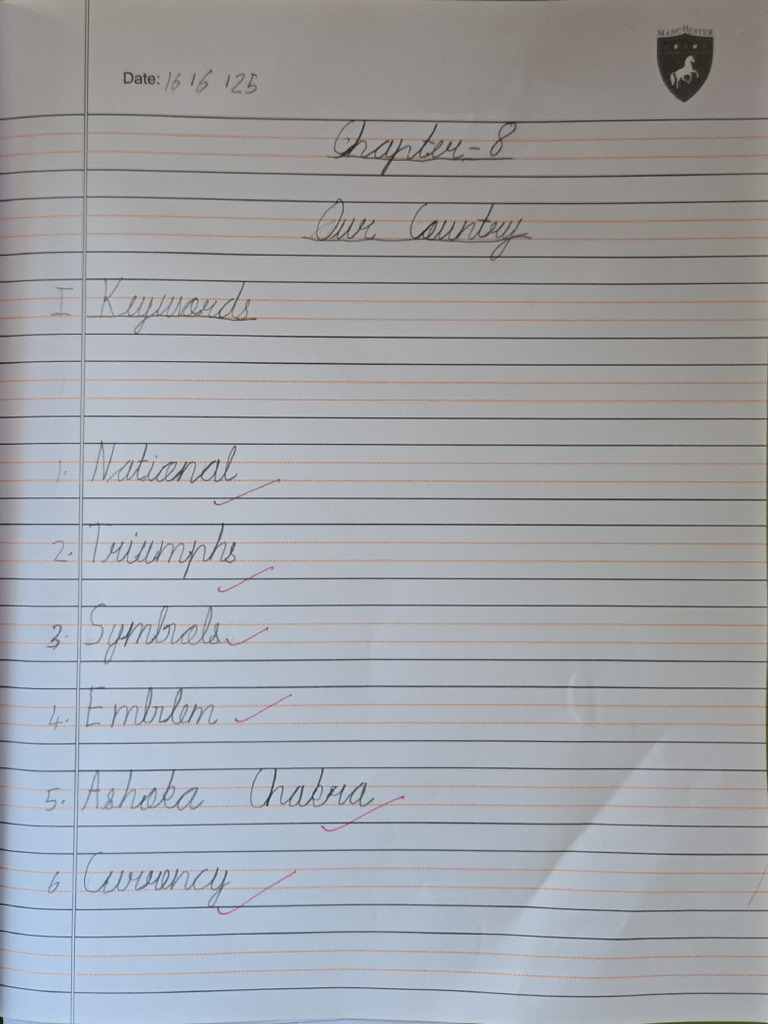 MANCHESTER
Date: 16/6/25
Chapter-8
Our Country
I Keywords
1. National
2. Triumphs
3. Symbols
4. Emblem
5. Ashoka Chakra
6 Currency